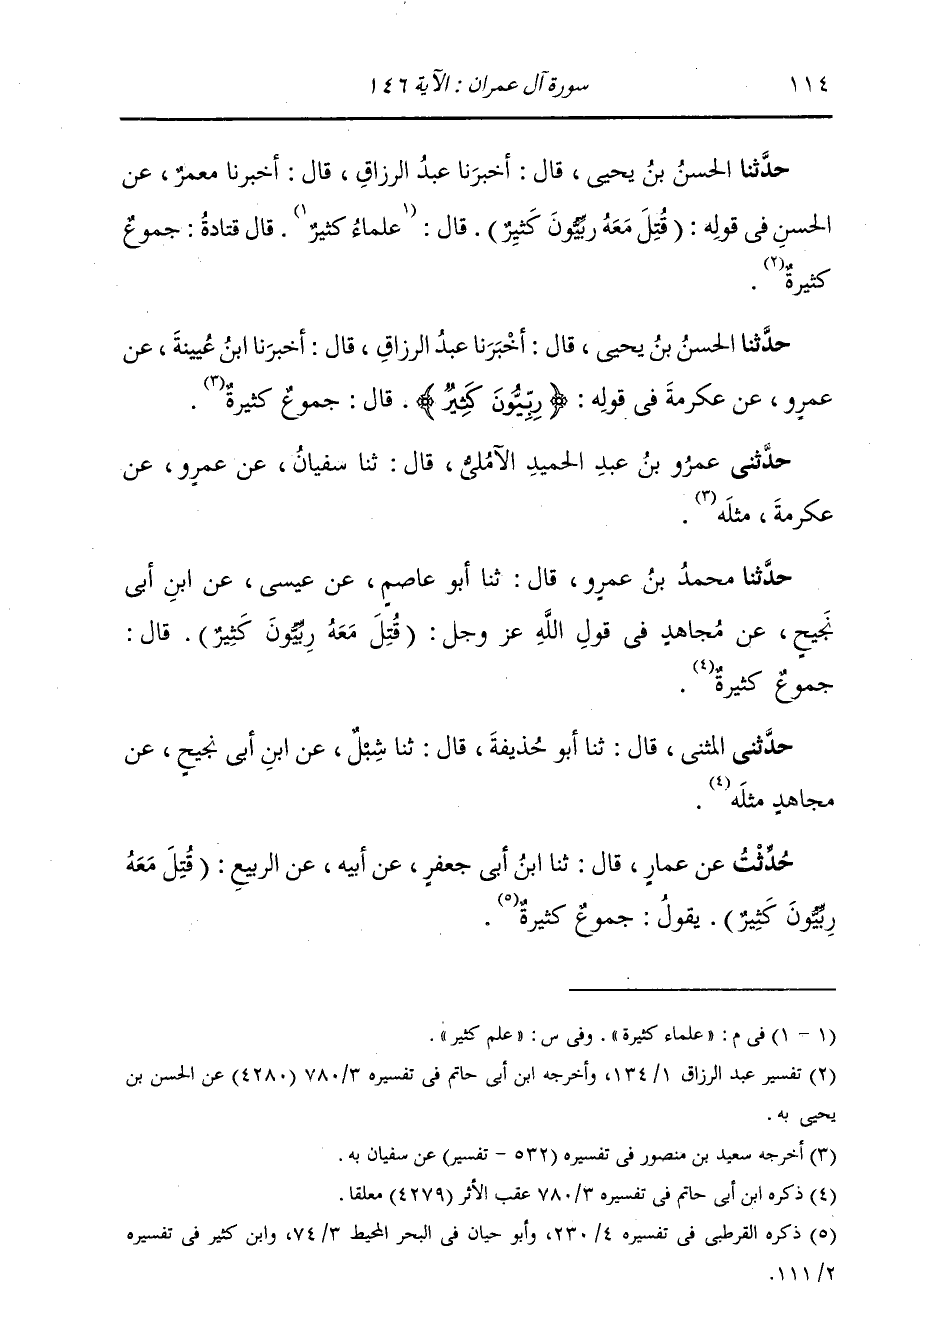 ١١٤ سورة آل عمران : الآية ١٤٦
حدَّثنا الحسنُ بنُ يحيى ، قال : أخبرَنا عبدُ الرزاقِ ، قال : أخبرنا معمرٌ ، عن
الحسنِ فى قولِه : ( قُتِلَ مَعَهُ رِبِّيُّونَ كَثِيرٌ ) . قال : (١علماءُ كثيرٌ١) . قال قتادةُ : جموعٌ
كثيرةٌ(٢) .
حدَّثنا الحسنُ بنُ يحيى ، قال : أخْبَرَنا عبدُ الرزاقِ ، قال : أخبرَنا ابنُ عُيينةَ ، عن
عمرٍو ، عن عكرمةَ فى قولِه : ﴿ رِبِّيُّونَ كَثِيرٌ ﴾ . قال : جموعٌ كثيرةٌ(٣) .
حدَّثنى عمرُو بنُ عبدِ الحميدِ الآمُلىُّ ، قال : ثنا سفيانُ ، عن عمرٍو ، عن
عكرمةَ ، مثلَه(٣) .
حدَّثنا محمدُ بنُ عمرٍو ، قال : ثنا أبو عاصمٍ ، عن عيسى ، عن ابنِ أبى
نَجيحٍ ، عن مُجاهدٍ فى قولِ اللَّهِ عز وجل : ( قُتِلَ مَعَهُ رِبِّيُّونَ كَثِيرٌ ) . قال :
جموعٌ كثيرةٌ(٤) .
حدَّثنى المثنى ، قال : ثنا أبو حُذيفةَ ، قال : ثنا شِبْلٌ ، عن ابنِ أبى نجيحٍ ، عن
مجاهدٍ مثلَه(٤) .
حُدِّثْتُ عن عمارٍ ، قال : ثنا ابنُ أبى جعفرٍ ، عن أبيه ، عن الربيعِ : ( قُتِلَ مَعَهُ
رِبِّيُّونَ كَثِيرٌ ) . يقولُ : جموعٌ كثيرةٌ(٥) .
(١ - ١) فى م : «علماء كثيرة» . وفى س : «علم كثير» .
(٢) تفسير عبد الرزاق ١/ ١٣٤، وأخرجه ابن أبى حاتم فى تفسيره ٧٨٠/٣ (٤٢٨٠) عن الحسن بن
يحيى به .
(٣) أخرجه سعيد بن منصور فى تفسيره (٥٣٢ - تفسير) عن سفيان به .
(٤) ذكره ابن أبى حاتم فى تفسيره ٧٨٠/٣ عقب الأثر (٤٢٧٩) معلقا .
(٥) ذكره القرطبى فى تفسيره ٤/ ٢٣٠، وأبو حيان فى البحر المحيط ٣/ ٧٤، وابن كثير فى تفسيره
٢/ ١١١.